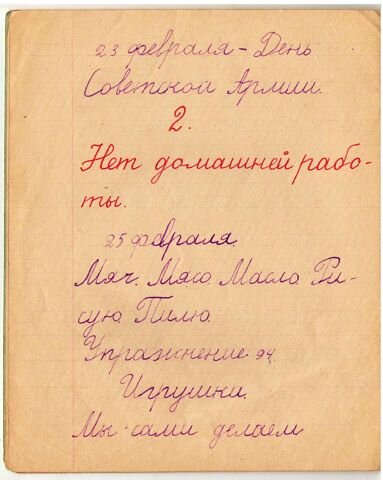 23 февраля – День
Советской Армии.
2.
Нет домашней рабо-
ты.
25 февраля.
Мяч. Мясо. Масло. Ри-
сую. Пилю.
Упражнение 94.
Игрушки.
Мы сами делаем